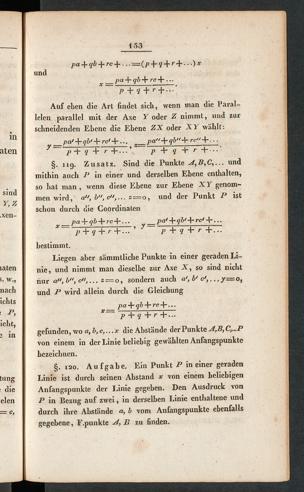 153
pa+qb+rc+...=(p+q+r+...)x
und
x = (pa+qb+rc+...)/(p+q+r+...).
Auf eben die Art findet sich, wenn man die Paral-
lelen parallel mit der Axe Y oder Z nimmt, und zur
schneidenden Ebene die Ebene ZX oder XY wählt:
y = (pa'+qb'+rc'+...)/(p+q+r+...), = (pa''+qb''+rc''+...)/(p+q+r+...).
§. 119. Zusatz. Sind die Punkte A,B,C,... und
mithin auch P in einer und derselben Ebene enthalten,
so hat man, wenn diese Ebene zur Ebene XY genom-
men wird, a'', b'', c'',... =0, und der Punkt P ist
schon durch die Coordinaten
x = (pa+qb+rc+...)/(p+q+r+...), y = (pa'+qb'+rc'+...)/(p+q+r+...)
bestimmt.
Liegen aber sämmtliche Punkte in einer geraden Li-
nie, und nimmt man dieselbe zur Axe X, so sind nicht
nur a'', b'', c'',... =0, sondern auch a', b' c',.., y=0,
und P wird allein durch die Gleichung
x = (pa+qb+rc+...)/(p+q+r+...)
gefunden, wo a, b, c,...x die Abstände der Punkte A,B,C,..P
von einem in der Linie beliebig gewählten Anfangspunkte
bezeichnen.
§. 120. Aufgabe. Ein Punkt P in einer geraden
Linie ist durch seinen Abstand x von einem beliebigen
Anfangspunkte der Linie gegeben. Den Ausdruck von
P in Bezug auf zwei, in derselben Linie enthaltene und
durch ihre Abstände a, b vom Anfangspunkte ebenfalls
gegebene, F.punkte A, B zu finden.